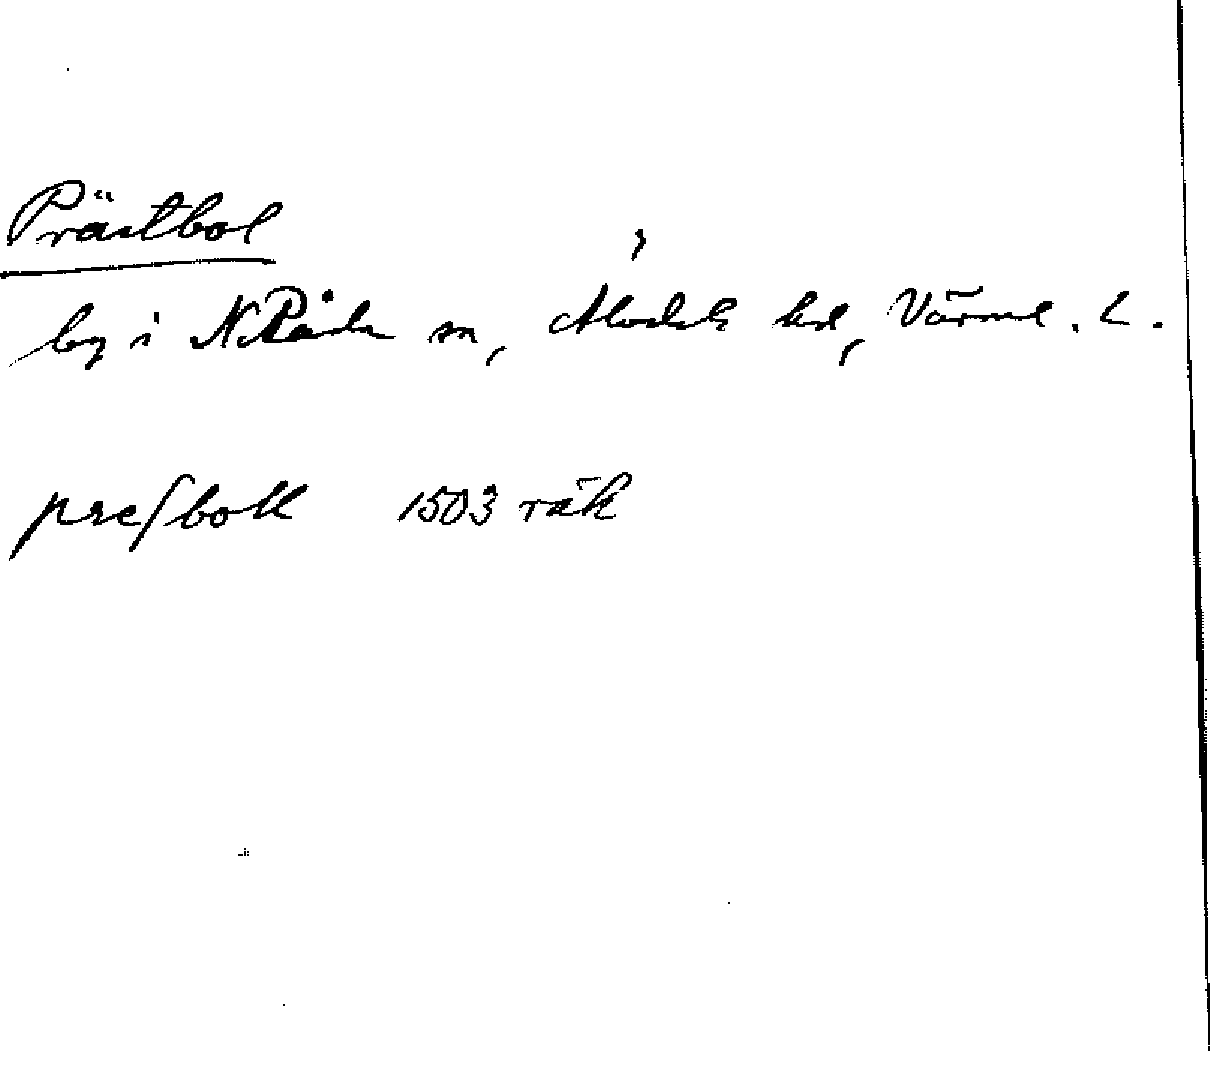 Prästbol
by i N Råda sn, Älvdals hd, Värml. L.
preſboll 1503 räk